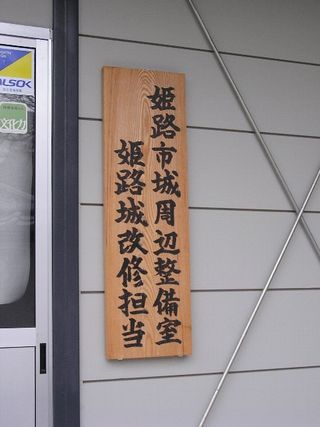 姫路市城周辺整備室
姫路城改修担当
ALSOK